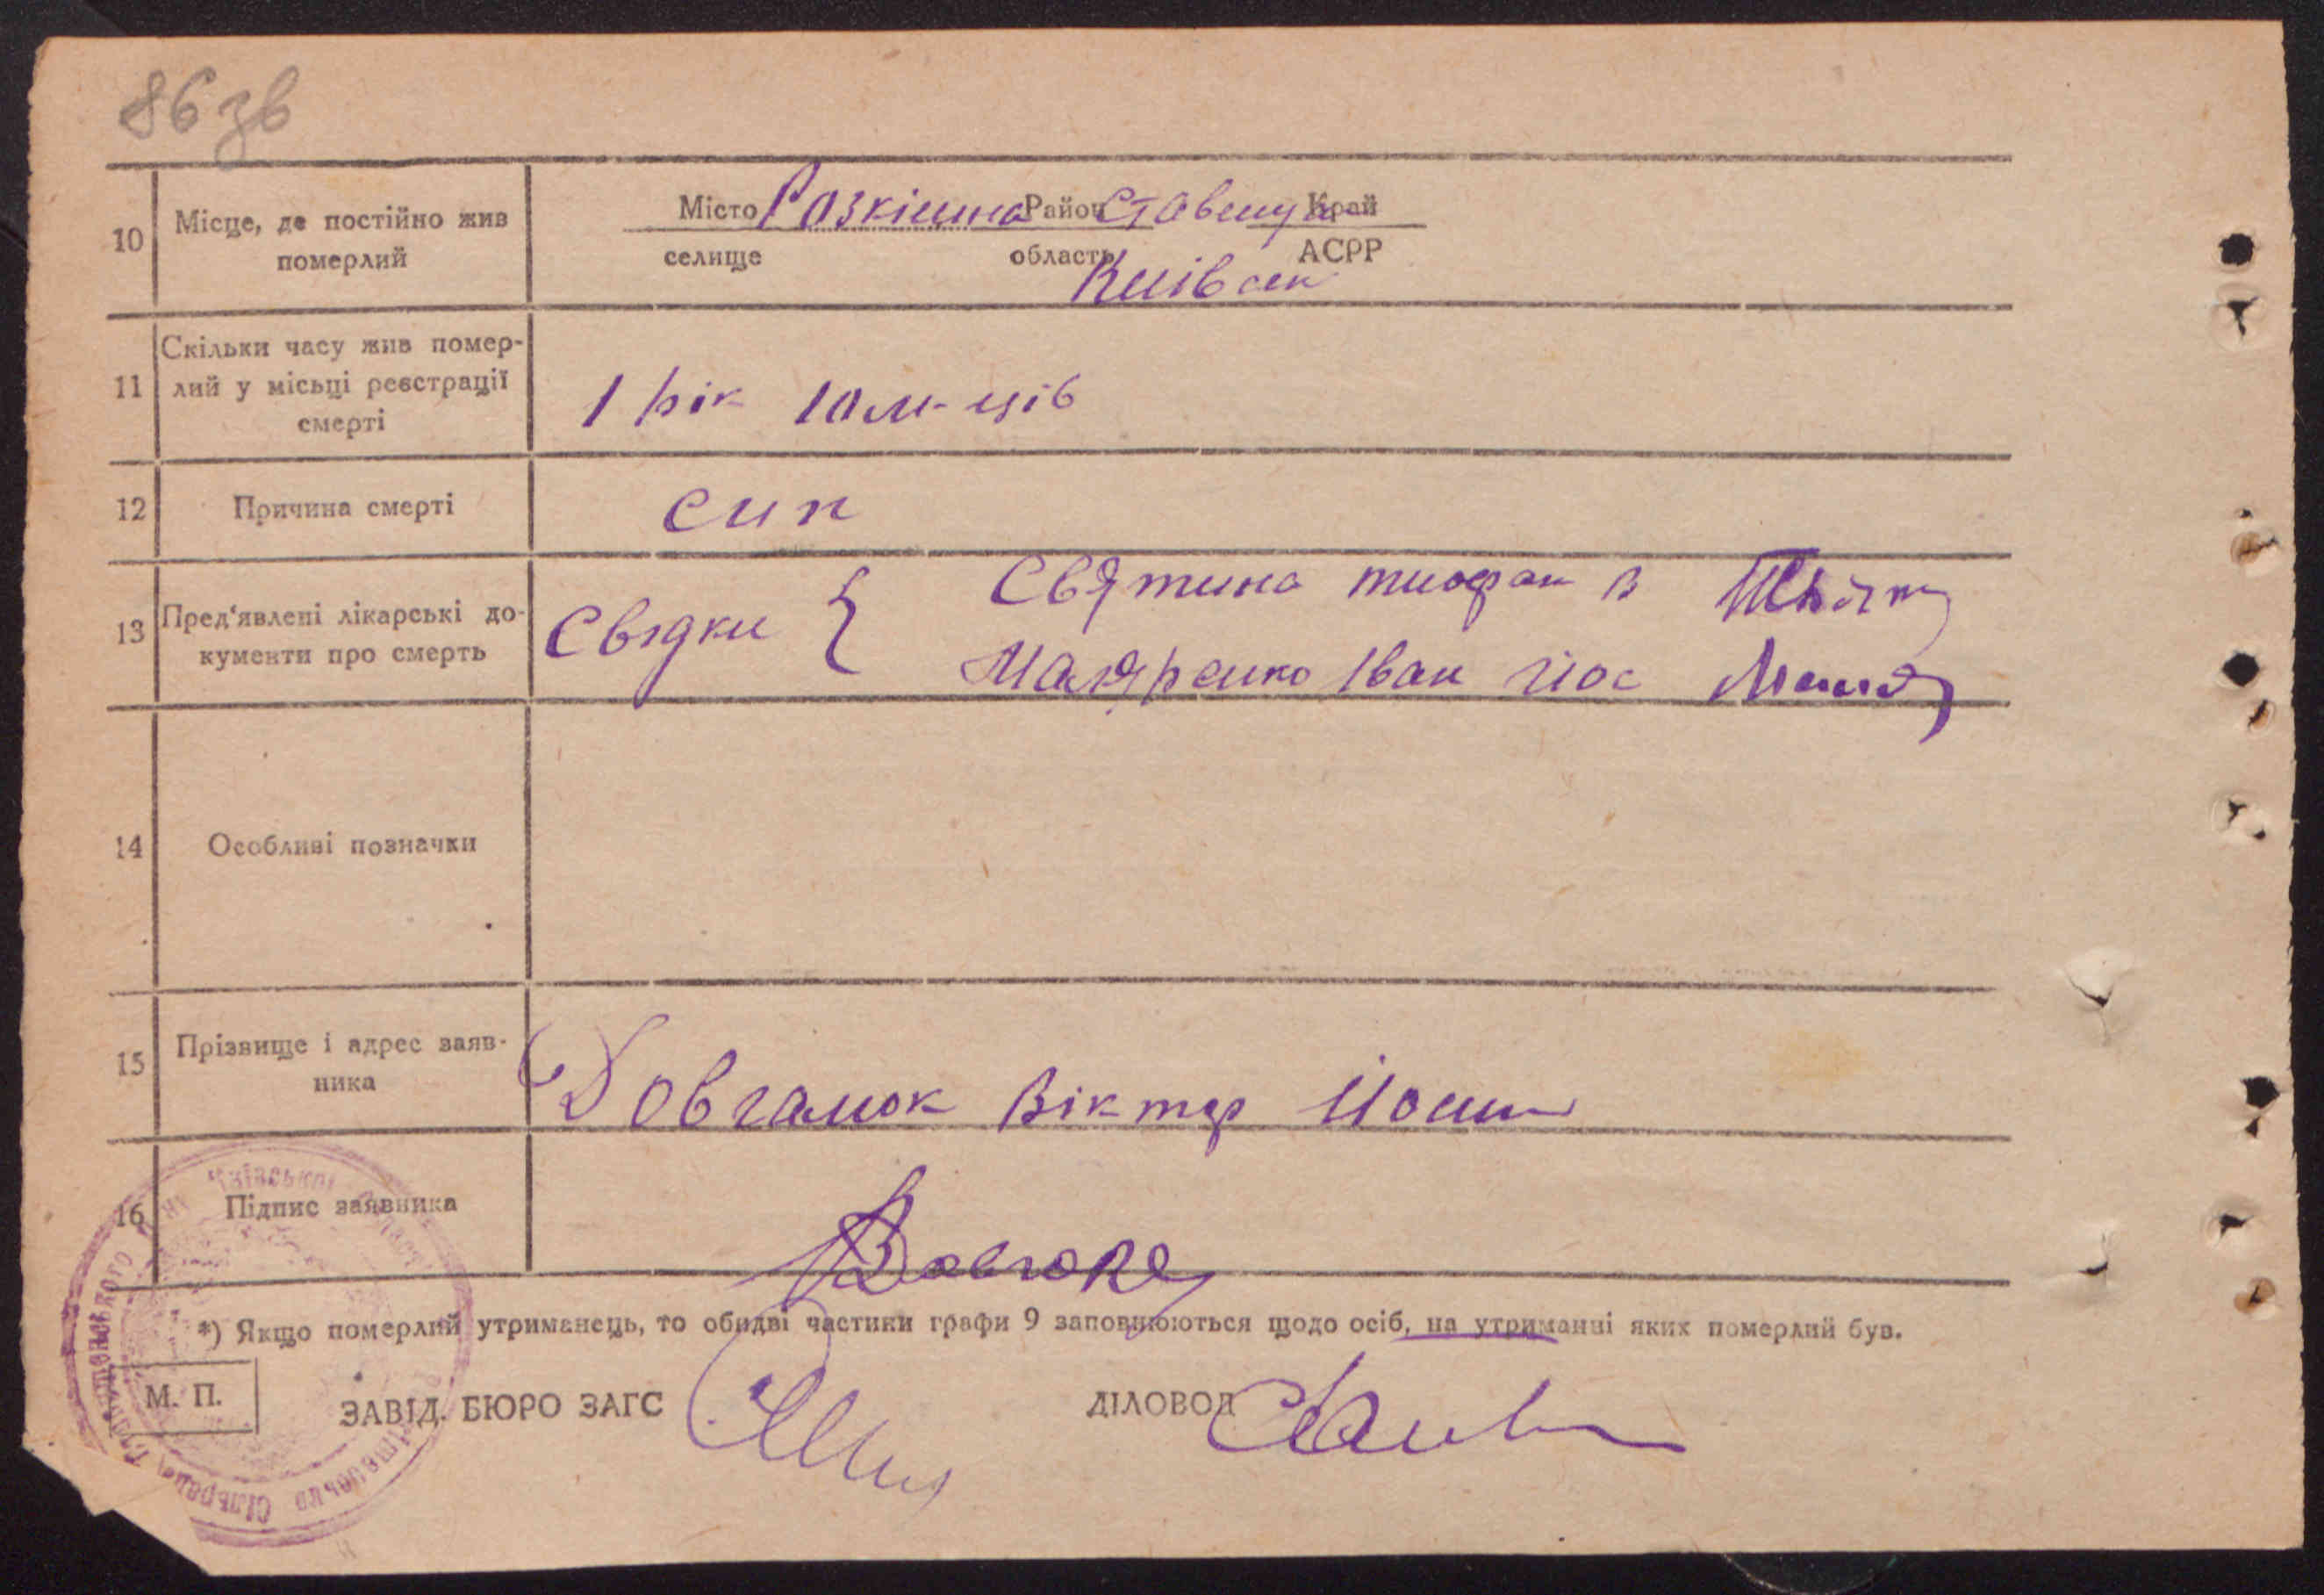 86 зв
10 Місце, де постійно жив померлий
Місто Розкішна Район Ставищ Край
селище область АСРР
Київськ
11 Скільки часу жив помер-
лий у місьці реєстрації
смерті
1 рік 10 м-ців
12 Причина смерті
сип
13 Пред'явлені лікарські до-
кументи про смерть
Свідки { Святина тиофан В
Маляренко Іван Йос
14 Особливі позначки
15 Прізвище і адрес заяв-
ника
Довганюк Віктор Йосип
16 Підпис заявника
*) Якщо померлий утриманець, то обидві частини графи 9 заповнюються щодо осіб, на утриманні яких померлий був.
М. П. ЗАВІД. БЮРО ЗАГС ДІЛОВОД